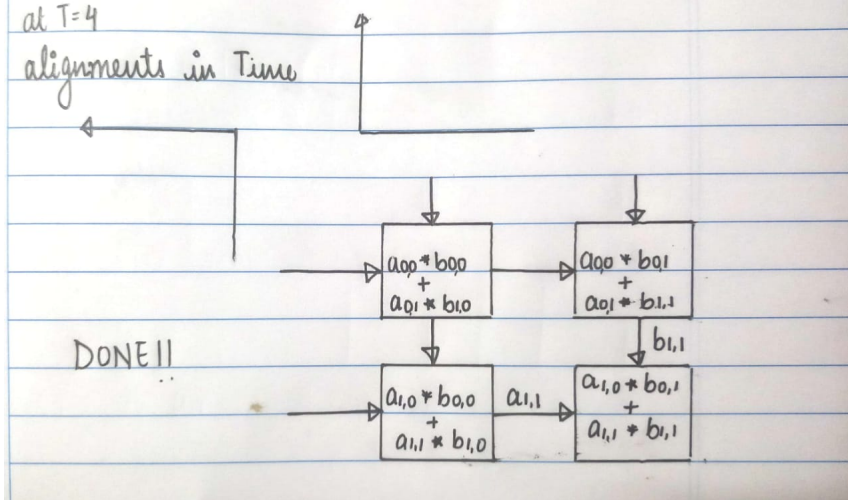 at T=4
alignments in Time
a0,0 * b0,0
+
a0,1 * b1,0
a0,0 * b0,1
+
a0,1 * b1,1
b1,1
DONE!!
a1,0 * b0,0
+
a1,1 * b1,0
a1,1
a1,0 * b0,1
+
a1,1 * b1,1